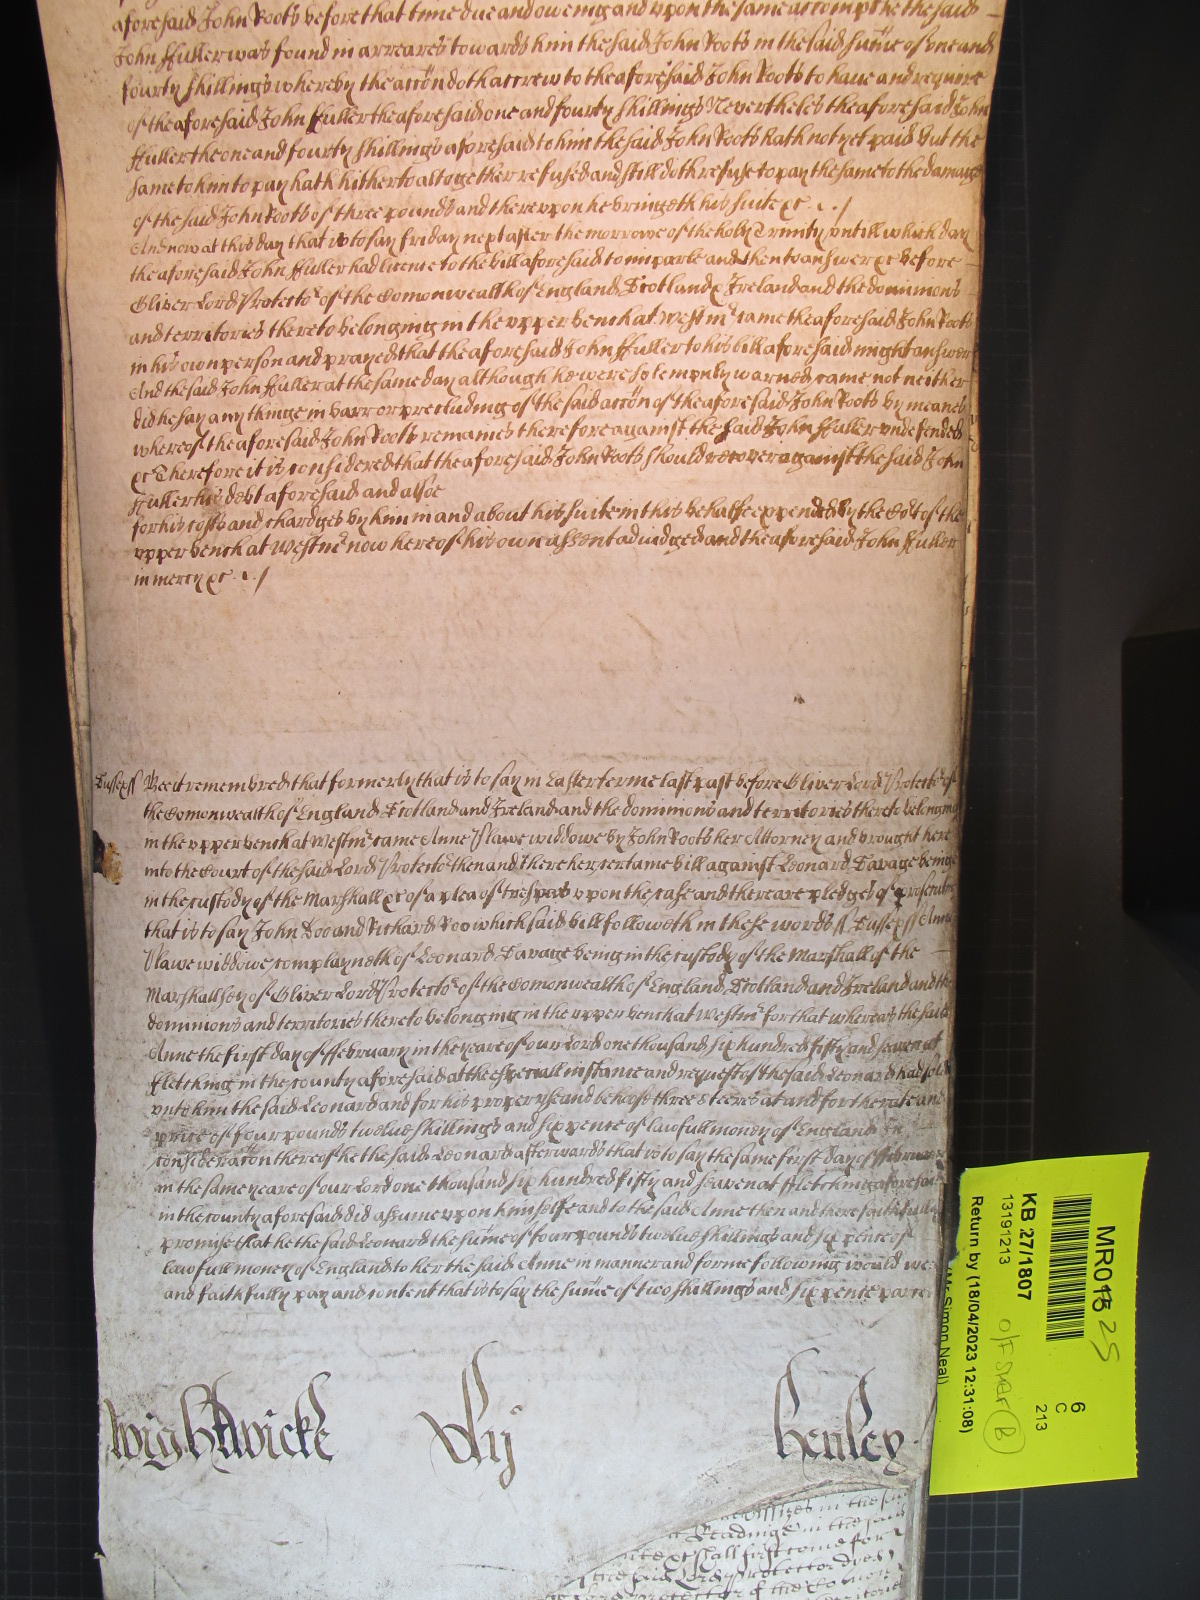 aforesaid John Roots before that time due and oweing and vpon the same accompt he the said
John ffuller was found in arreares towards him the said John Roots in the said sume of one and
fourty shillings whereby the accon doth accrew to the aforesaid John Roots to haue and require
of the aforesaid John ffuller the aforesaid one and fourty shillings Neverthelés the aforesaid John
ffuller the one and fourty shillings aforesaid to him the said John Roots hath not yet paid but the
same to him to pay hath hitherto altogether refused and still doth refuse to pay the same to the damage
of the said John Roots of three pounds and therevpon he bringeth his suite &c
And now at this day that is to say friday next after the morrowe of the holy Trinity vntill which day
the aforesaid John ffuller had licence to the bill aforesaid to imparle and then to answer &c before
Oliver Lord Protector of the Comonwealth of England Scotland & Ireland and the dominions
and territories thereto belonging in the vpper bench at Westmr came the aforesaid John Roots
in his own person and prayed that the aforesaid John ffuller to his bill aforesaid might answer
And the said John ffuller at the same day although he were solempnly warned came not neither
did he say any thinge in barr or precluding of the said accon of the aforesaid John Roots by meanes
whereof the aforesaid John Roots remaines therefore against the said John ffuller vndefended
&c Therefore it is considered that the aforesaid John Roots should recover against the said John
ffuller his debt aforesaid and alsoe
for his costs and chardges by him in and about his suite in this behalfe expended by the Cort of the
vpper bench at Westmr now here of his own assent adiudged and the aforesaid John ffuller
in mercy &c
Sussex ss Bee it remembred that formerly that is to say in Easter terme last past before Oliver Lord Protector of
the Comonwealth of England Scotland and Ireland and the dominions and territories thereto belonging
in the vpper bench at Westmr came Anne Slawe widdowe by John Roots her Attorney and brought here
into the Court of the said Lord Protector then and there her certaine bill against Leonard Savage being
in the custody of the Marshall &c of a plea of trespas vpon the case and there are pledges of prosecution
that is to say John Doo and Richard Roo which said bill followeth in these words ss Sussex ss Anne
Slawe widdowe complayneth of Leonard Savage being in the custody of the Marshall of the
Marshallsey of Oliver Lord Protector of the Comonwealth of England Scotland and Ireland and the
dominions and territories thereto belonging in the vpper bench at Westmr for that whereas the said
Anne the first day of ffebruary in the yeare of our Lord one thousand six hundred fifty and seaven at
fletching in the county aforesaid at the especiall instance and request of the said Leonard had sold
vnto him the said Leonard and for his proper vse and behoofe three steeres at and for the rate and
price of four pounds twelue shillings and six pence of lawfull money of England in
consideracon thereof he the said Leonard afterwards that is to say the same first day of ffebruary
in the same yeare of our Lord one thousand six hundred fifty and seaven at ffletching aforesaid
in the county aforesaid did assume vpon himselfe and to the said Anne then and there faithfully
promise that he the said Leonard the sume of four pounds twelue shillings and six pence of
lawfull money of England to her the said Anne in manner and forme following would we
and faithfully pay and content that is to say the sume of two shillings and six pence parcel
Wightwicke xlij Henley
Offices in the said
Readings in the said
&c shall first come for
the said Lord Protector does
Protector of the Comon
territories
MR018 25
KB 27/1807
13191213
Return by (18/04/2023 12:31:08)
(Mr Simon Neal)
6
C
213
O/F SHER B